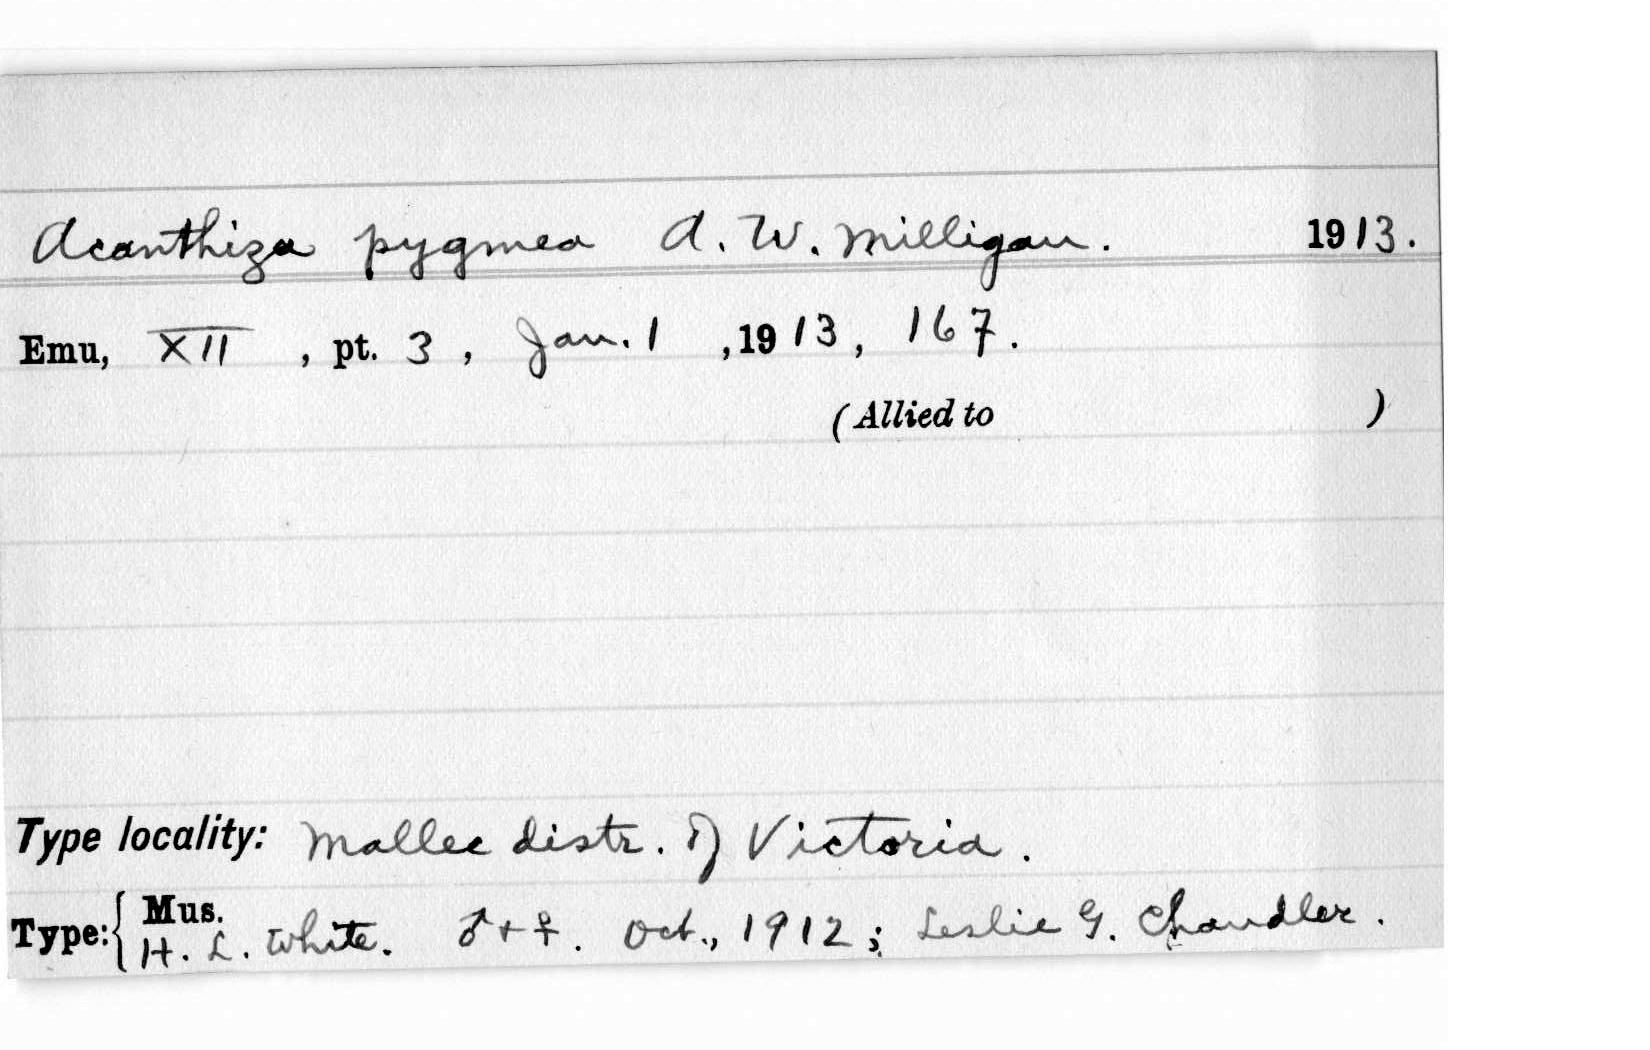 Acanthiza pygmea A. W. Milligan. 1913.
Emu, XII, pt. 3, Jan. 1, 1913, 167.
(Allied to )
Type locality: Mallee distr. of Victoria.
Type: { Mus.
H. L. White. ♂ + ♀. Oct., 1912; Leslie G. Chandler.